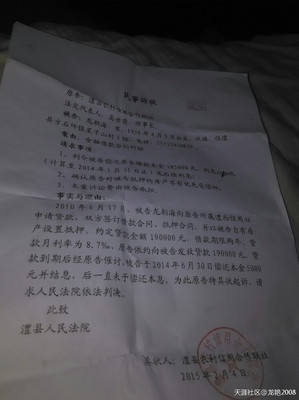 民事诉状
原告：澧县农村信用合作联社
法定代表人
案由：金融借款合同纠纷
请求事项：
1、判令被告偿还原告借款本金185000元
（计算至2014年12月31日）
2、确认原告对被告抵押房产享有优先受偿权。
3、本案诉讼费由被告承担。
事实与理由：
2010年6月17日，被告龙朝海向原告所属澧南信用社
申请贷款，双方签订借款合同、抵押合同，并以被告自有房
产设置抵押，约定贷款金额190000元，借款期限两年，贷
款月利率为8.7‰，原告依约向被告发放贷款190000元。
贷款到期后经原告催讨，被告于2014年6月30日偿还本金5000
元并结息，后一直未予偿还本息，为此原告特具状起诉，请
求人民法院依法判决。
此致
澧县人民法院
具状人：澧县农村信用合作联社
2015年2月4日
天涯社区@龙艳2008